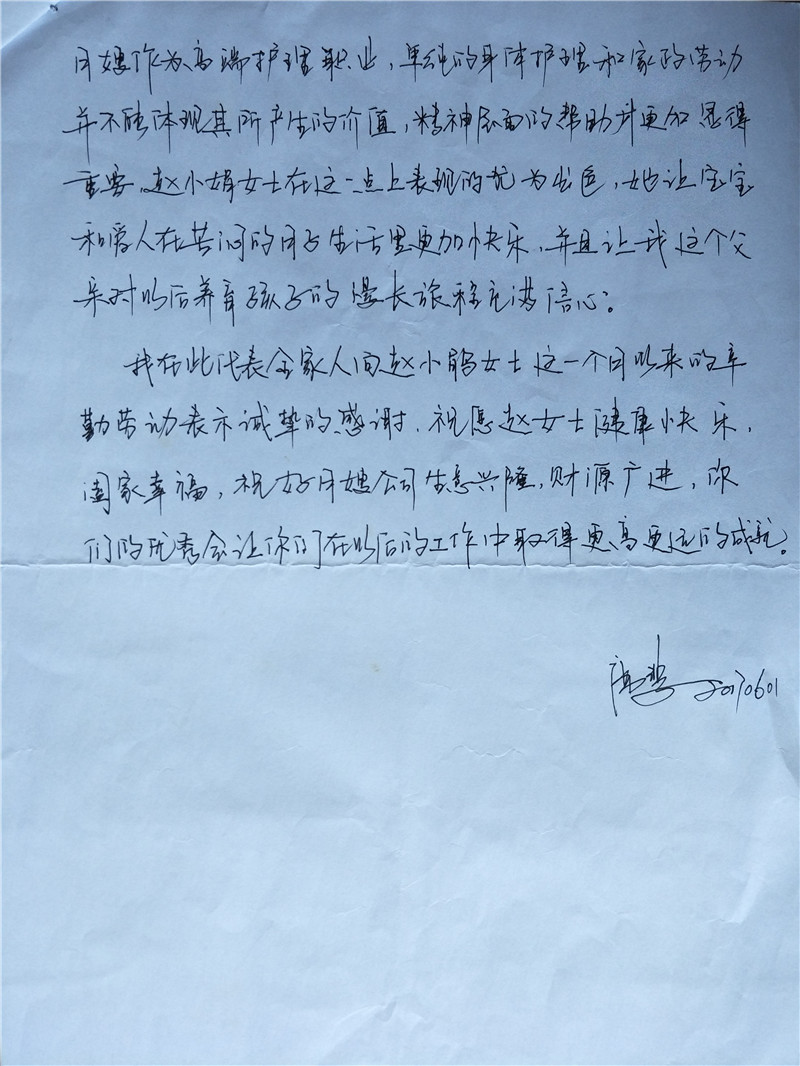 月嫂作为高端护理职业，单纯的身体护理和家政劳动
并不能体现其所产生的价值，精神层面的帮助并更加显得
重要，赵小娟女士在这一点上表现的尤为出色，她让宝宝
和爱人在苦闷的月子生活里更加快乐，并且让我这个父
亲对以后养育孩子的漫长旅程充满信心。
我在此代表全家人向赵小娟女士这一个月以来的辛
勤劳动表示诚挚的感谢，祝愿赵女士健康快乐，
阖家幸福，祝好月嫂公司生意兴隆，财源广进，你
们的优秀会让你们在以后的工作中取得更高更远的成就。
20170601